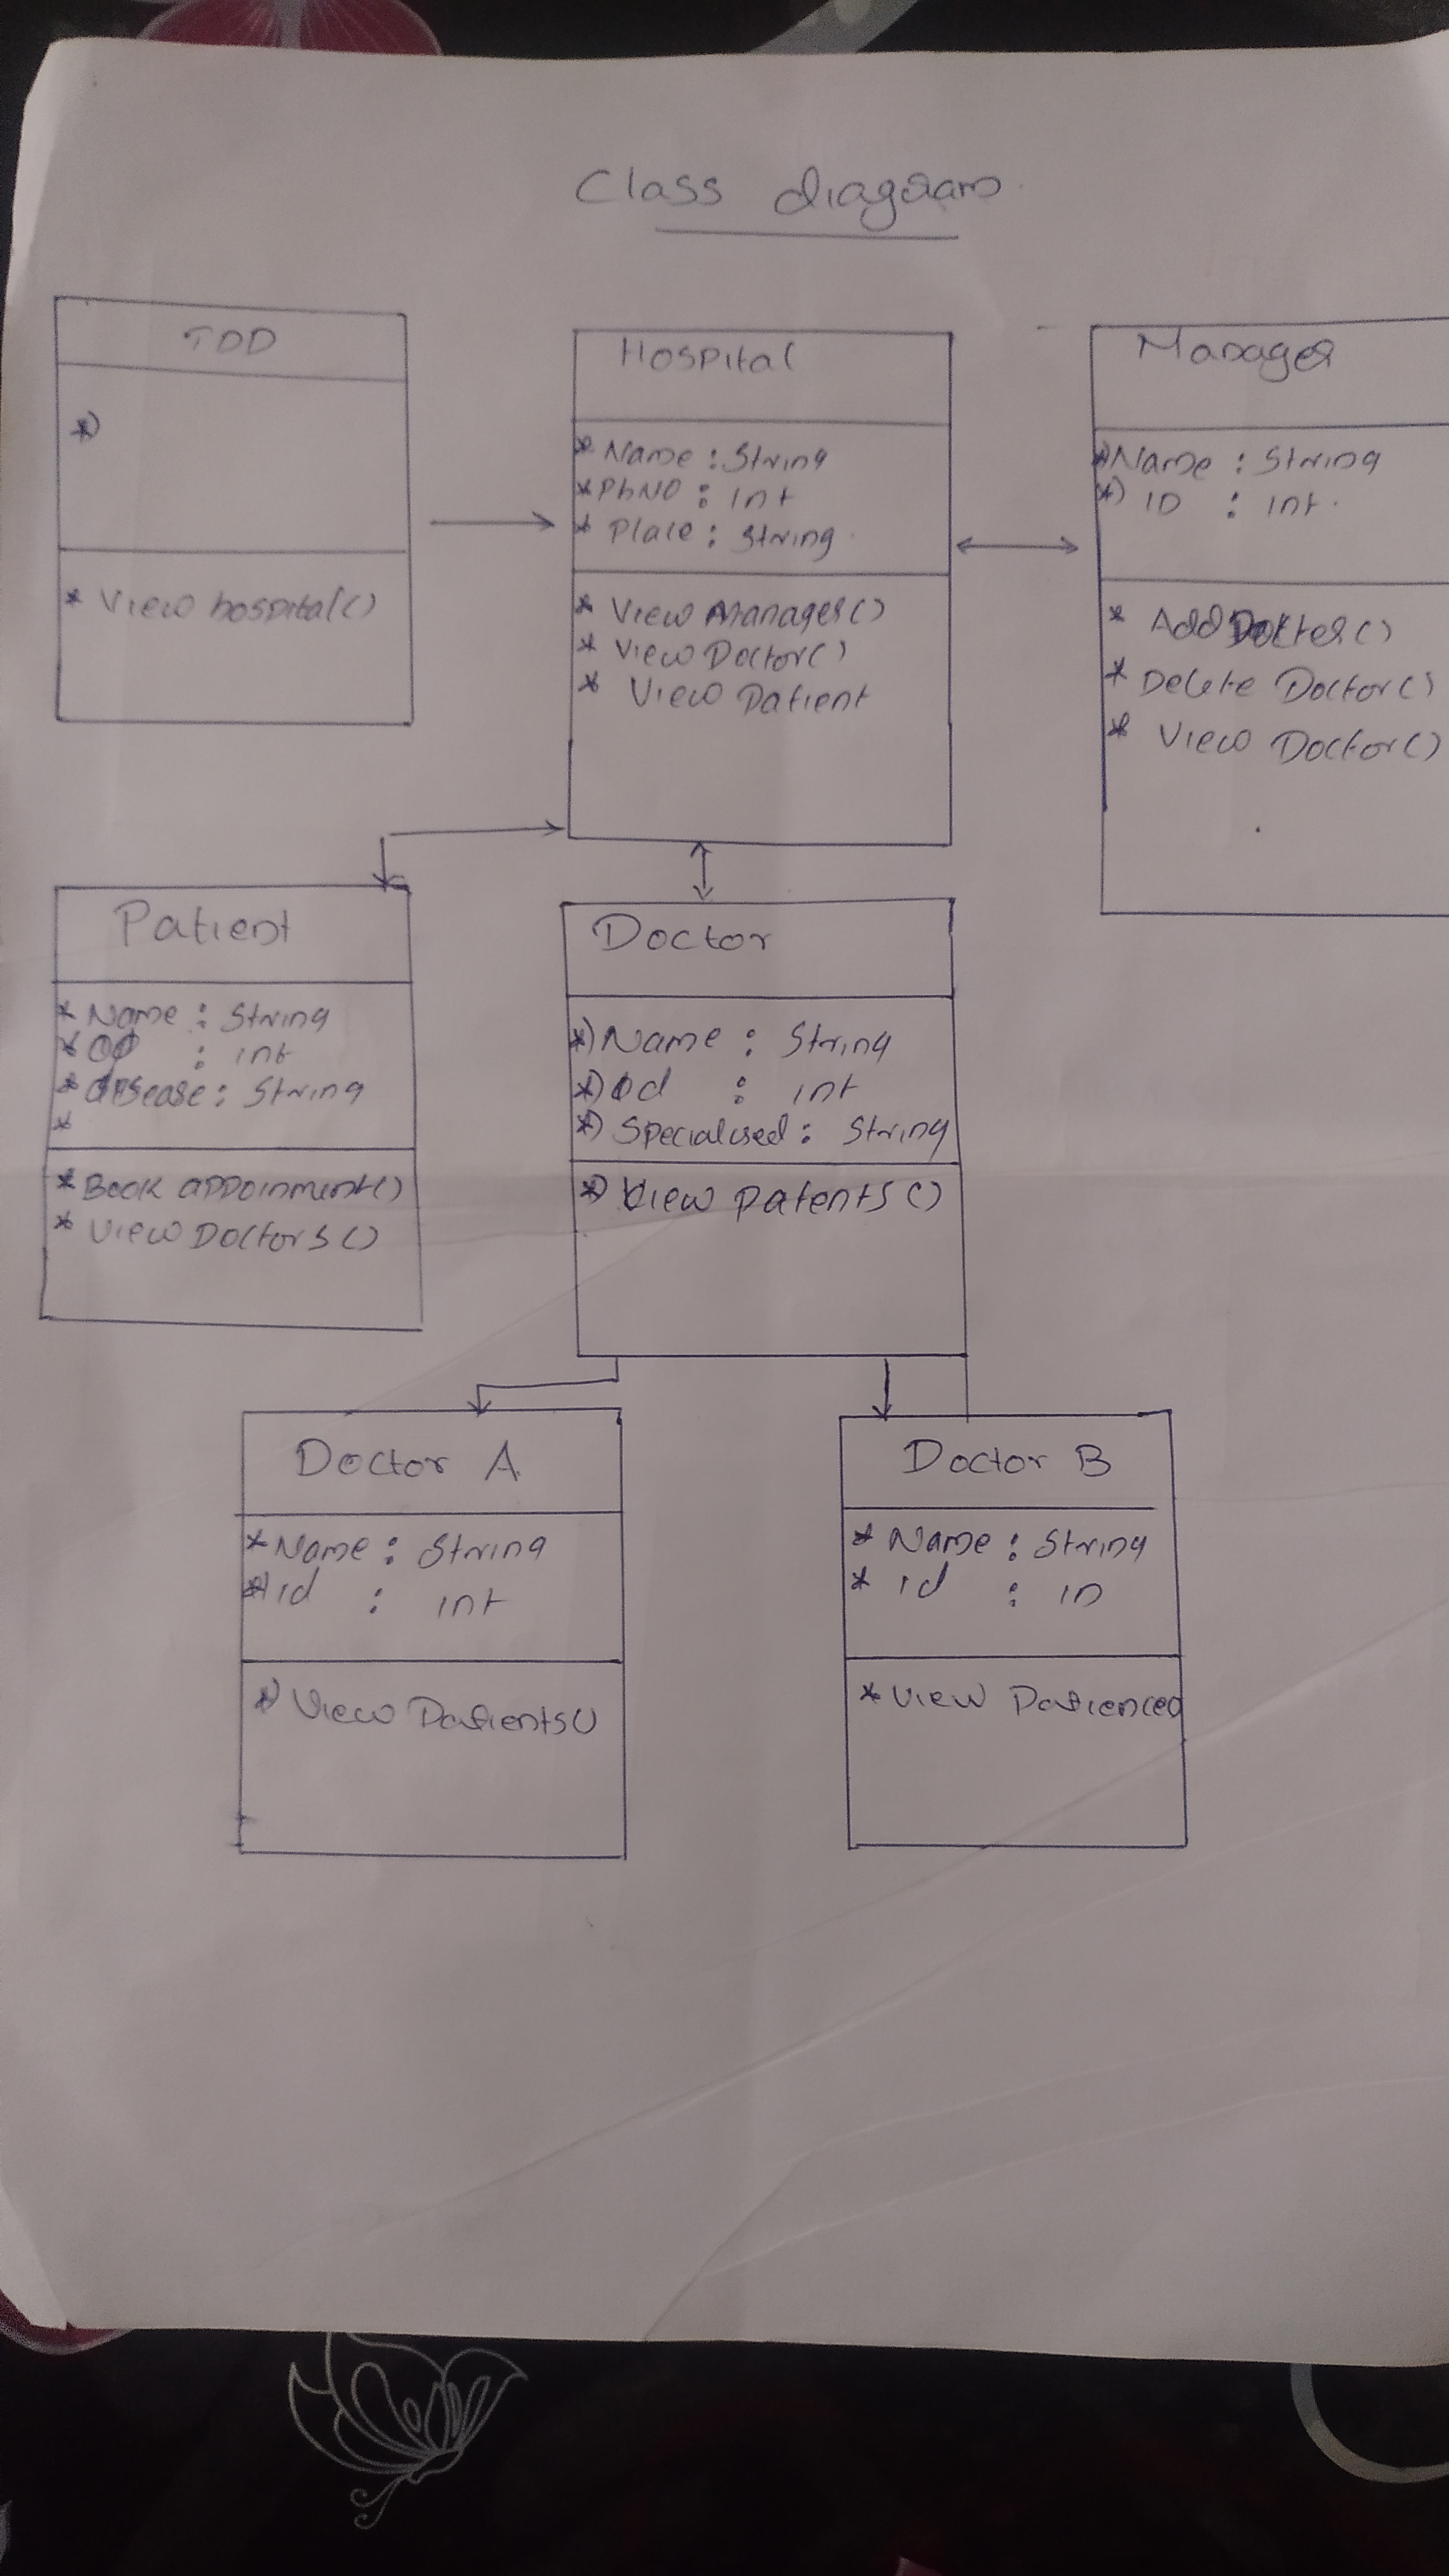 Class diagram
TDD
*)
* View hospital()
Hospital
* Name : String
* PhNO : int
* Place : String
* View Manager()
* View Doctor()
* View Patient
Manager
*) Name : String
*) ID : int.
* Add Docter()
* Delete Doctor()
* View Doctor()
Patient
* Name : String
* : int
* disease : String
*
* Book appoinment()
* View Doctors()
Doctor
*) Name : String
*) id : int
*) Specialised : String
*) View patents()
Doctor A
* Name : String
*) id : int
*) View Patients()
Doctor B
* Name : String
* id : in
* View